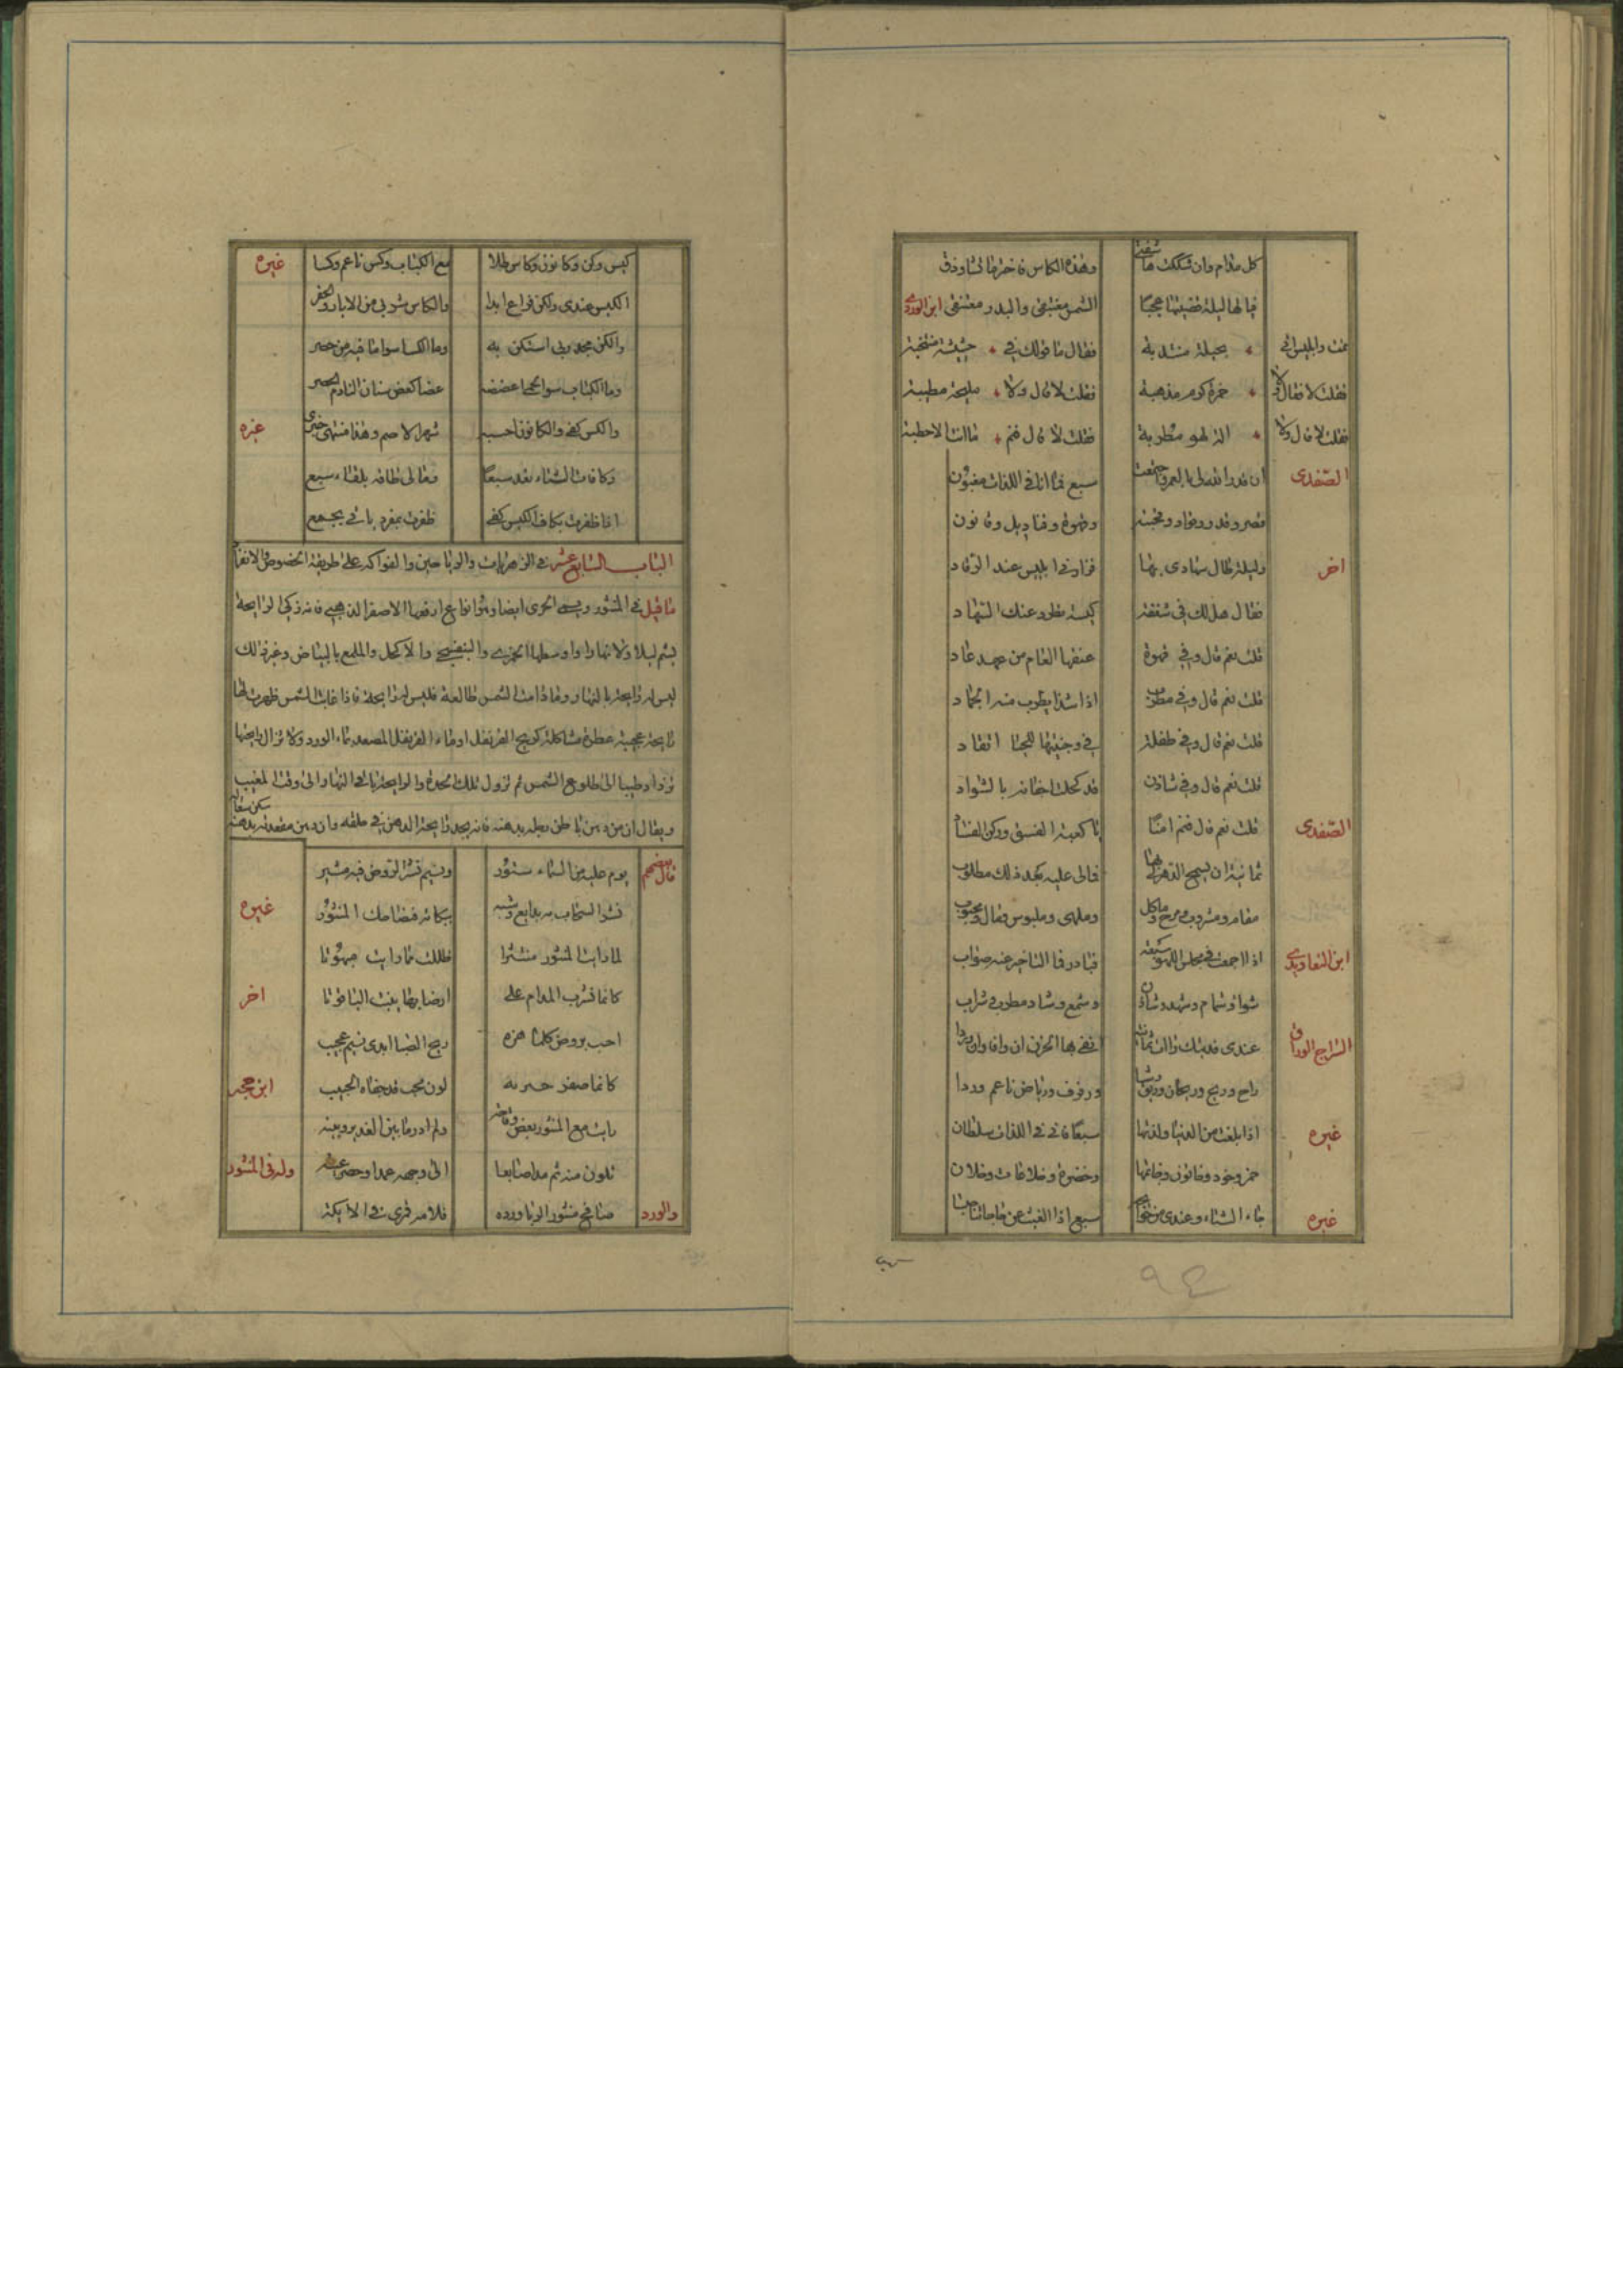 كل مدام وان شككت ها شفتى وهذه الكاس فاخترما تشا وذق
فيا لها ليلة قضيتها عجبا الشمس مغتبقى والبدر معتنقى ابن الوردى
نمت وابليس اتى بحيلة منتدبة فقال ما قولك فى حشيشة منتخبة
فقلت لا فقال لا خمرة كرم مذهبة فقلت لا قال ولا مليحة مطيبة
فقلت لا قال ولا الة لهو مطربة فقلت لا قال فنم ما انت الا حطبة
الصفدى ان قدر الله لى بالعمر واجتمعت سبع فما انا فى اللذات مغبون
قصر وقدر وقواد وقحبته وقهوة وقناديل وقانون
اخر وليلة طال سهادى بها فزارنى ابليس عند الرقاد
فقال هل لك فى شفقة كبسة تطرد عنك السهاد
قلت نعم قال وفى قهوة عتقها العام من عهد عاد
قلت نعم قال وفى مطرب اذا شدا يطرب منه الجماد
قلت نعم قال وفى طفلة فى وجنتيها للحيا اتقاد
قلت نعم قال وفى شادن قد كحلت اجفانه بالسواد
الصفدى قلت نعم قال فنم امنا يا كعبة الفسق وركن الفساد
ثمانية ان يسمح الدهر لى بها فمالى عليه بعد ذلك مطلوب
مقام ومشروب ومزح وماكل وملهى وملبوس ومال ومحبوب
ابن التعاويذى اذا اجتمعت فى مجلس اللهو سبعة فبادر فما التاخير عنه صواب
شواء وشمام وشهد وشادن وشمع وشاد مطرب وشراب
السراج الوراق عندى فديتك راات ثمانية انفى بها الحزن ان وافا وان وردا
راح وريح وريحان وريق رشا ورفرف ورياض ناعم وردا
غيره اذا بلغت من الدنيا ولذتها سبعا فانى فى اللذات سلطان
خمر وخود وخاتون وخاتمها وخضرة وخلاعات وخلان
غيره جاء الشتاء وعندى من حوائجه سبع اذا الغيث عن حاجاتنا حبسا
كيس وكن وكانون وكاس طلا مع الكباب وكس ناعم وكسا غيره
الكيس عندى ولكن فراغ ابدا والكاس شربى من الابار والحفر
والكن مجدوبى استكن به وما الكسا سوا ما فيه من حصر
وما الكباب سوا لحما عضضته عضا كعض بنان النادم الحصر
والكس كفى والكانون احسبه شهر الاصم وهذا منتهى خبرى غيره
وكافات الشتاء تعد سبعا ومالى طاقة بلقاء سبع
اذا ظفرت بكاف الكيس كفى ظفرت بمفرد ياتى بجمع
الباب السابع عشر فى الزهريات والرياحين والفواكه على طريقة الخصوص والانفراد
ما قيل فى المنثور ويسمى الخيرى ايضا وهو انواع ارفعها الاصفر الذهبى فانه ذكى الرايحة
يشم ليلا ونهارا واوسطها الخمرى والبنفسجى والاكحل والملمع بالبياض وغير ذلك
ليس له رايحة بالنهار وما دامت الشمس طالعة فليس له رايحة فاذا غابت الشمس ظهرت لها
رايحة عجيبة عطرة مشاكلة كريح القرنفل او ماء القرنفل المصعد بماء الورد ولا تزال رايحتها
تزداد طيبا الى طلوع الشمس ثم تزول تلك الرايحة باقى النهار والى وقت المغيب
ويقال ان من دهن باطن رجله بدهنه فانه يجد رايحة الدهن فى حلقه وان دهن مقعدته بدهنه سكن سعاله
قال بعضهم يوم عليه من السماء ستور ونسيم نشر الروض فيه مشير
نشر السحاب به بدايع وشيه ببكائه فضاحك المنثور غيره
لما رايت المنثور منتثرا ظللت مما رايت مبهوتا
كانما نشرب المدام على ارض بها ينبت الياقوتا اخر
احب بروض كلما هزه ريح الصبا اهدى نسيم عجيب
كانما صفر خيريه لون محب قد جفاه الحبيب ابن حجر
رايت مع المنثور بعض وقاحة ولم ادر ما بين الغدير وبينه
تلون منه ثم مد اصابعا الى وجهه عمدا وحصر عينه وله فى المنثور
والورد صافح منثور الربا ورده فلامه قمرى فى الايكه